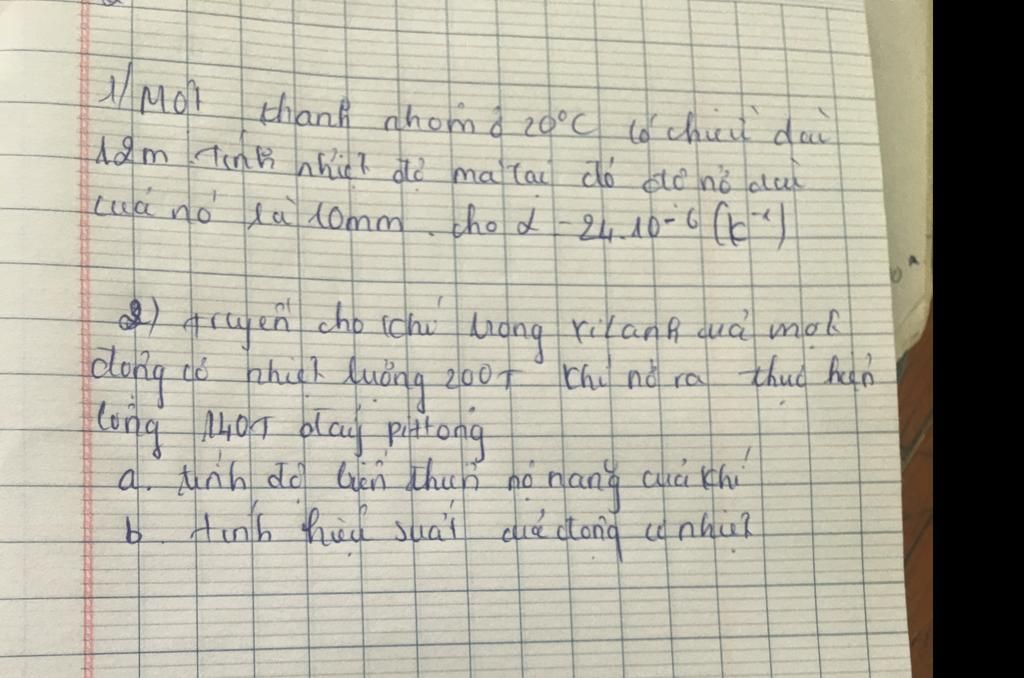 1/ Một thanh nhôm ở 20°C có chiều dài
12m. Tính nhiệt độ mà tại đó độ nở dài
của nó là 10mm. cho α = 24.10⁻⁶ (k⁻¹)
2) truyền cho khí trong xilanh của một
động cơ nhiệt lượng 200J khí nở ra thực hiện
công 140J đẩy pittông
a. tính độ biến thiên nội năng của khí
b. tính hiệu suất của động cơ nhiệt